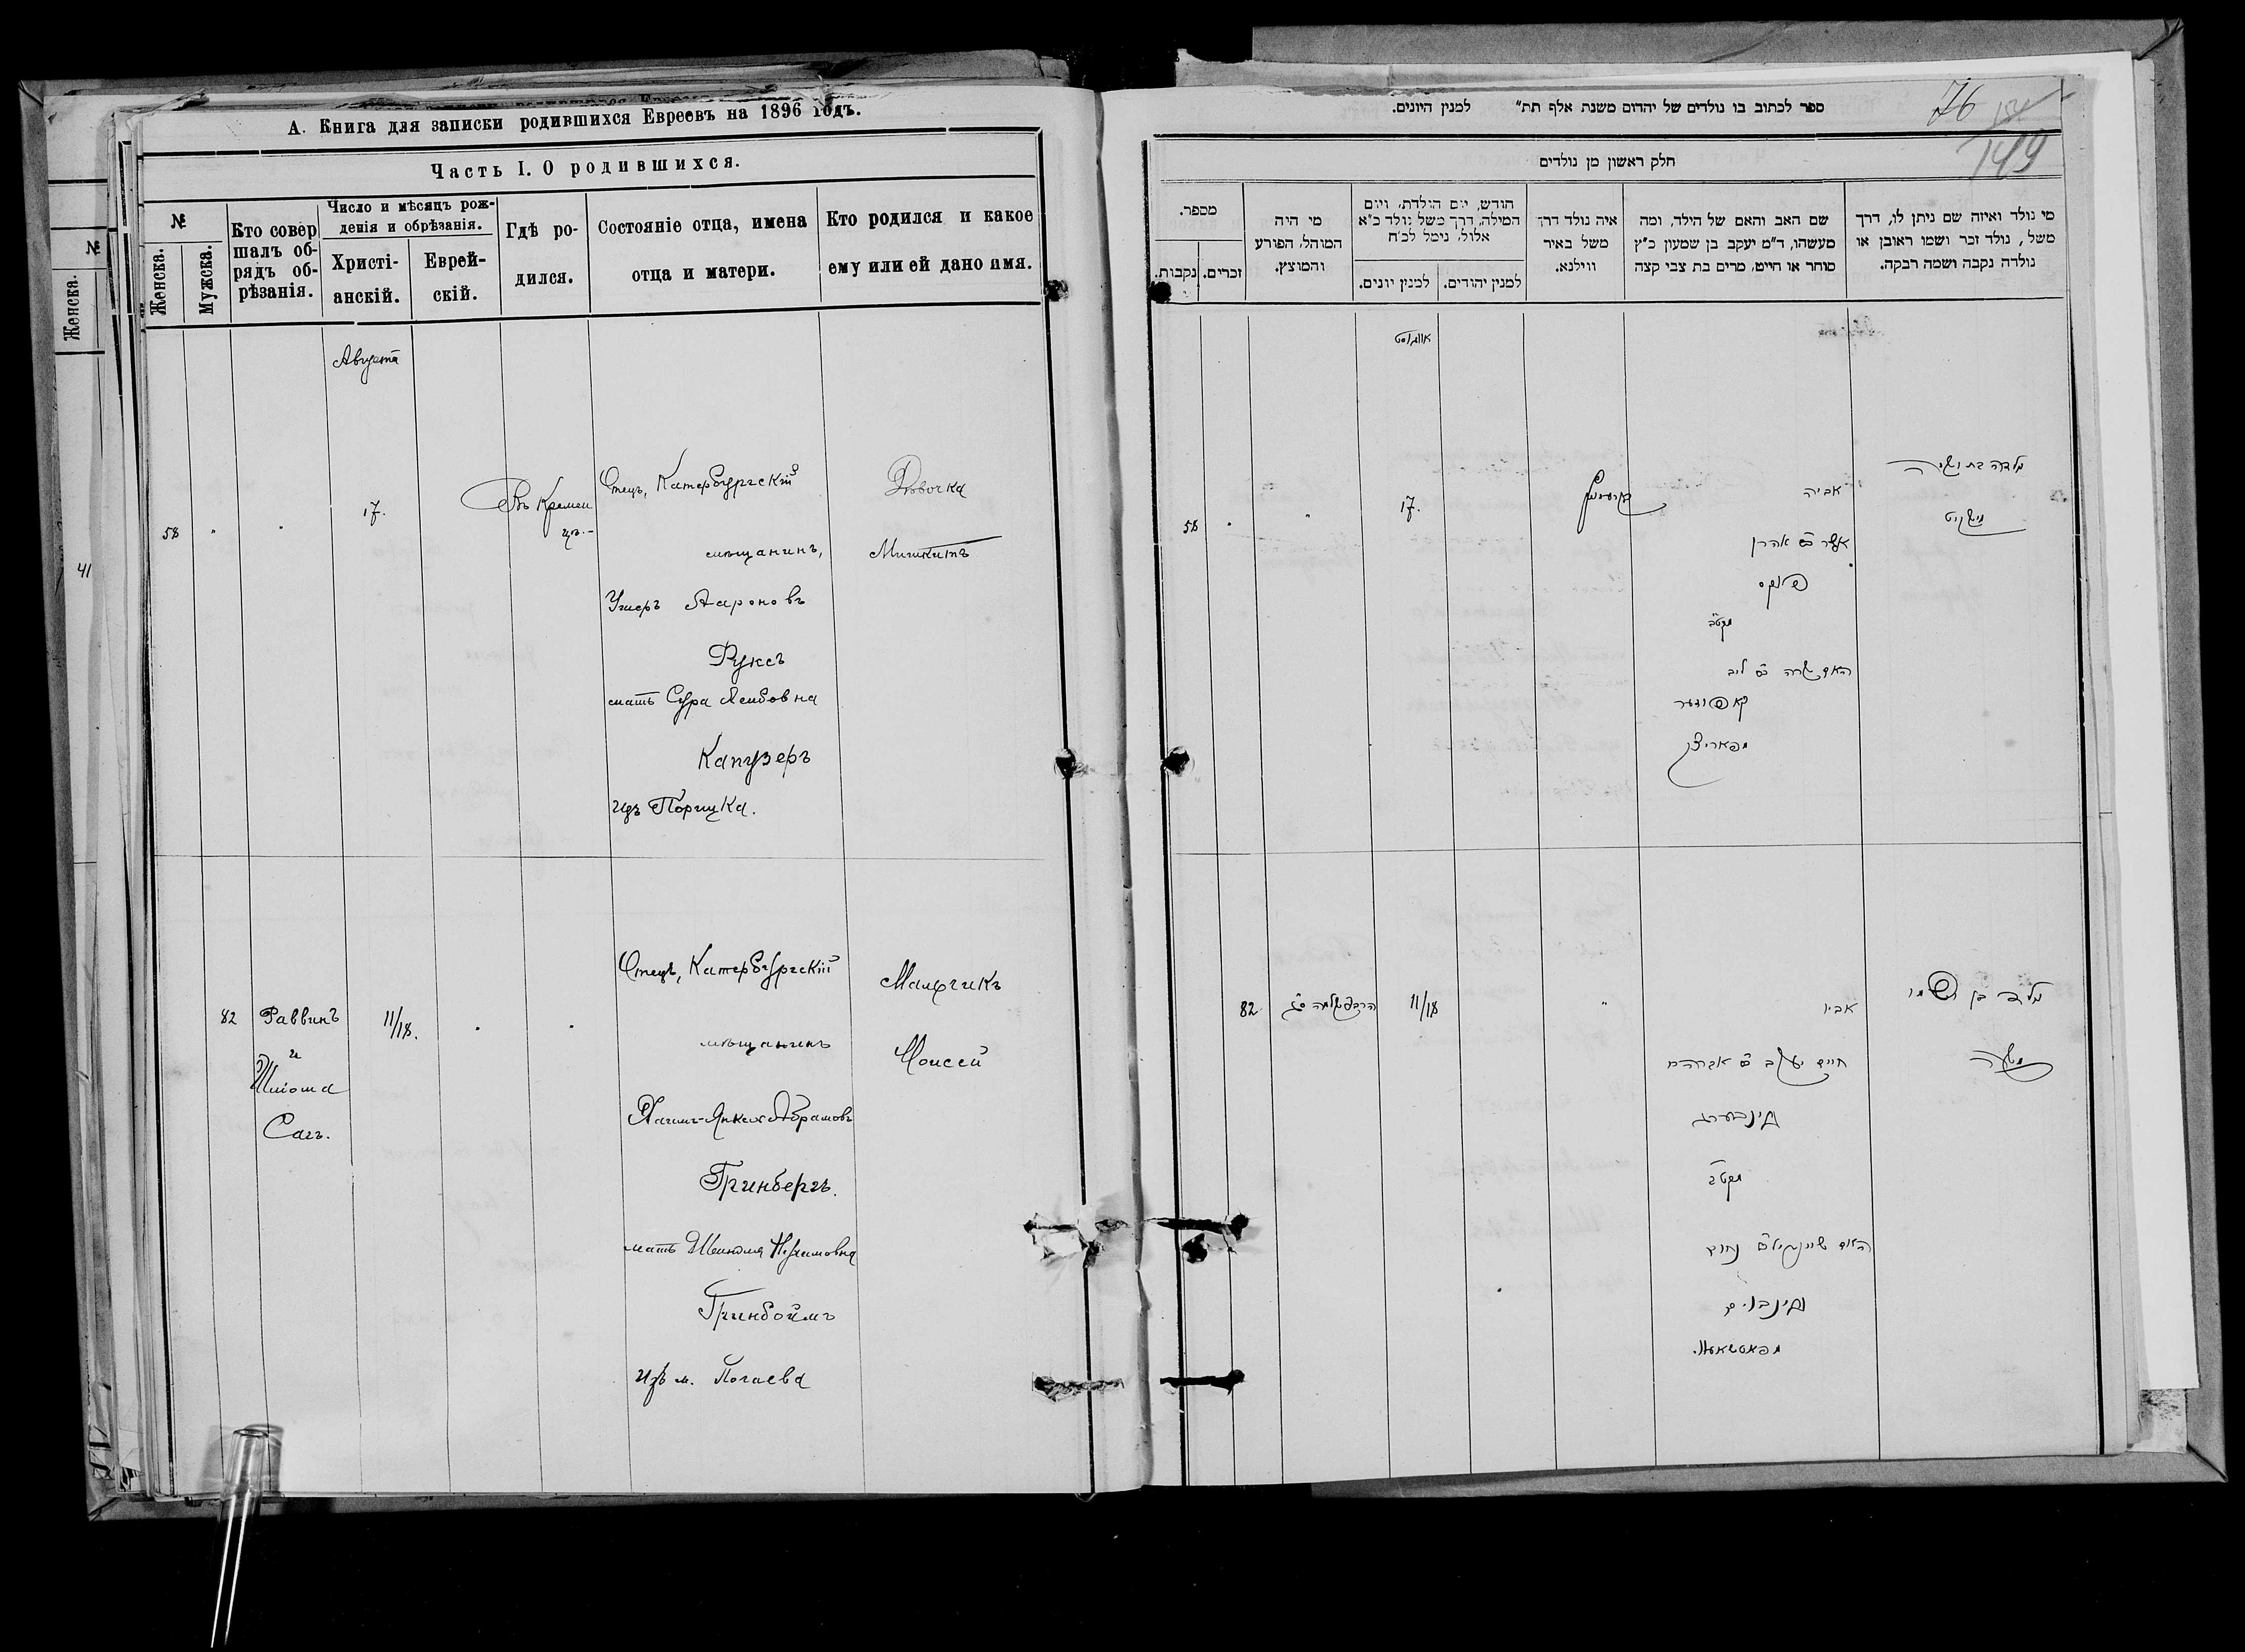 А. Книга для записки родившихся Евреевъ на 1896 годъ.
Часть I. О родившихся.
№
Женска.
41
№
Женска.
Мужска.
Кто совер
шалъ об-
рядъ об-
рѣзанія.
Число и мѣсяцъ рож-
денія и обрѣзанія.
Христі-
анскій.
Еврей-
скій.
Гдѣ ро-
дился.
Состояніе отца, имена
отца и матери.
Кто родился и какое
ему или ей дано имя.
Августа
58
17.
Въ Кремен
цѣ.-
Отецъ, Катербургскій
мѣщанинъ,
Ушеръ Аароновъ
Фуксъ
мать Сура Лейбовна
Капузеръ
изъ Порицка.
Дѣвочка
82
Раввинъ
и
Сагъ.
11/18.
Отецъ, Катербургскій
мѣщанинъ
Хаимъ-Янкель Абрамовъ
Гринбергъ.
мать Нухимовна
Гринбоймъ
изъ м. Почаева
Мальчикъ
Моисей
ספר לכתוב בו נולדים של יהדים משנת אלף תת״ למנין היונים.
76
149
חלק ראשון מן נולדים
מספר.
נקבות.
זכרים.
מי היה
המוהל, הפורע
והמוצץ.
חודש, יום הולדת, ויום
המילה, דרך משל נולד כ״א
אלול, נימל לכ״ח
למנין יונים.
למנין יהודים.
איה נולד דרך
משל באיר
ווילנא.
שם האב והאם של הילד, ומה
מעשהו, ד״מ יעקב בן שמעון כ״ץ
סוחר או חייט, מרים בת צבי קצה
מי נולד ואיזה שם ניתן לו, דרך
משל, נולד זכר ושמו ראובן או
נולדה נקבה ושמה רבקה.
אווגוסט
58
17.
אביה
אשר ב״ר אהרן
פוקס
האם שרה ב״ר ליב
82
11/18
אביו
חיים יעקב ב״ר אברהם
גרינבערג
גרינבוים